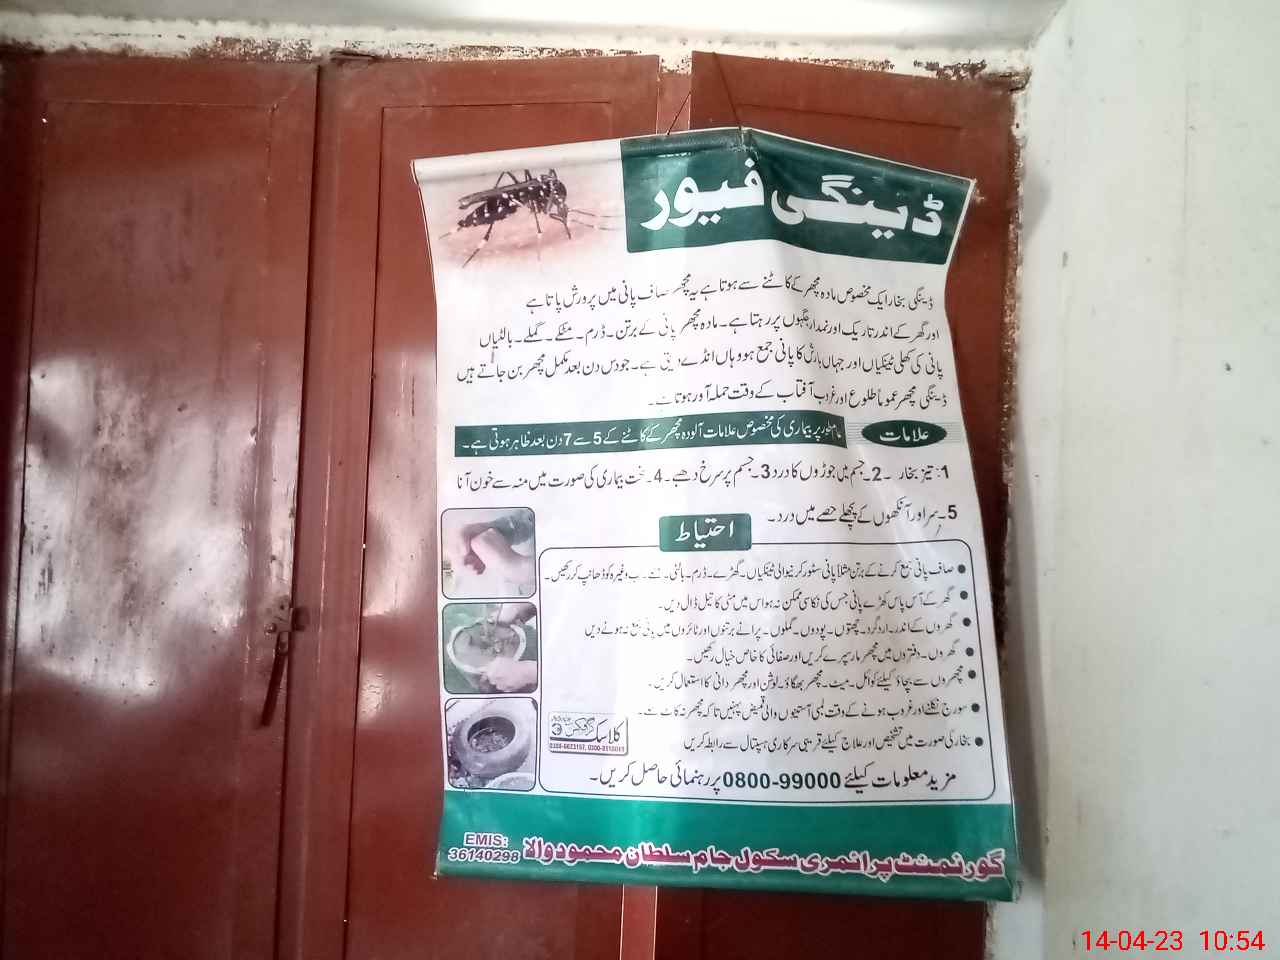 ڈینگی فیور
ڈینگی بخار ایک مخصوص مادہ مچھر کے کاٹنے سے ہوتا ہے یہ مچھر صاف پانی میں پرورش پاتا ہے
اور گھر کے اندر تاریک اور نمدار جگہوں پر رہتا ہے۔ مادہ مچھر پانی کے برتن۔ ڈرم۔ مٹکے۔ گملے۔ بالٹیاں
پانی کی کھلی ٹینکیاں اور جہاں بارش کا پانی جمع ہو وہاں انڈے دیتی ہے۔ جو دس دن بعد مکمل مچھر بن جاتے ہیں
ڈینگی مچھر عموماً طلوع اور غروب آفتاب کے وقت حملہ آور ہوتا ہے۔
علامات
عام طور پر بیماری کی مخصوص علامات آلودہ مچھر کے کاٹنے کے 5 سے 7 دن بعد ظاہر ہوتی ہے۔
1: تیز بخار ۔ 2۔ جسم میں جوڑوں کا درد 3۔ جسم پر سرخ دھبے۔ 4۔ سخت بیماری کی صورت میں منہ سے خون آنا
5۔ سر اور آنکھوں کے پچھلے حصے میں درد۔
احتیاط
● صاف پانی جمع کرنے کے برتن مثلاً پانی سٹور کرنیوالی ٹینکیاں۔ گھڑے۔ ڈرم۔ بالٹی۔ وغیرہ کو ڈھانپ کر رکھیں۔
● گھر کے آس پاس کھڑے پانی جس کی نکاسی ممکن نہ ہو اس میں مٹی کا تیل ڈال دیں۔
● گھروں کے اندر۔ ارد گرد۔ چھتوں۔ پودوں۔ گملوں۔ پرانے برتنوں اور ٹائروں میں پانی جمع نہ ہونے دیں
● گھروں۔ دفتروں میں مچھر مار سپرے کریں اور صفائی کا خاص خیال رکھیں۔
● مچھروں سے بچاؤ کیلئے کوائل۔ میٹ۔ مچھر بھگاؤ۔ لوشن اور مچھر دانی کا استعمال کریں۔
● سورج نکلنے اور غروب ہونے کے وقت لمبی آستینوں والی قمیض پہنیں تاکہ مچھر نہ کاٹ سکے۔
● بخار کی صورت میں تشخیص اور علاج کیلئے قریبی سرکاری ہسپتال سے رابطہ کریں
مزید معلومات کیلئے 0800-99000 پر رہنمائی حاصل کریں۔
کلاسک گرافکس
گورنمنٹ پرائمری سکول جام سلطان محمود والا
EMIS:
36140298
14-04-23 10:54